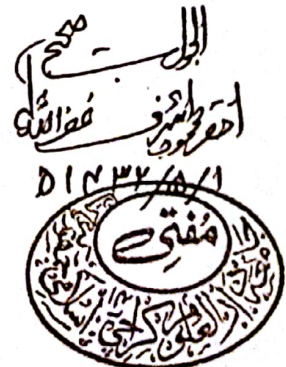 الجواب صحیح
احقر محمود اشرف غفر اللہ لہ
۱/۵/۱۴۳۲ھ
مفتی
دار العلوم کراچی